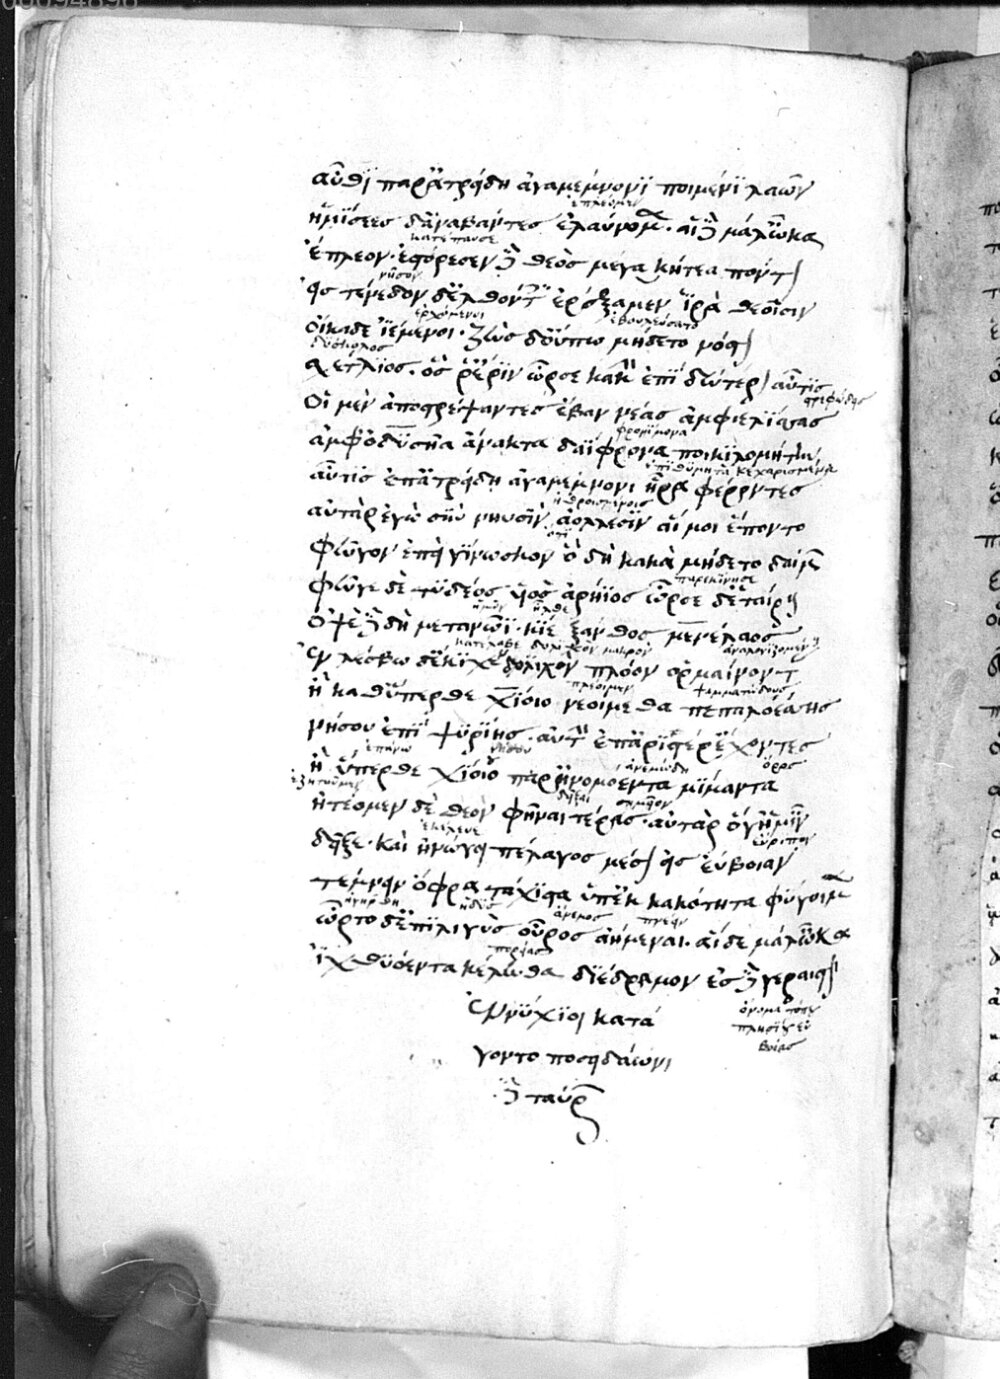 αὖθι παρ' ἀτρείδη ἀγαμέμνονι ποιμένι λαῶν
ἐπλέομεν
ἡμίσεες δ' ἀναβάντες ἐλαύνομεν· αἱ δὲ μάλ' ὦκα
κατέπαυσε
ἔπλεον· ἐστόρεσεν δὲ θεὸς μεγακήτεα πόντον
νῆσον
ἐς τένεδον δ' ἐλθόντες ἐρέξαμεν ἱρὰ θεοῖσιν
ἐρχόμενοι ἐβουλεύσατο
οἴκαδε ἱέμενοι· ζεὺς δ' οὔπω μήδετο νόστον
σχέτλιος· ὅς ῥ' ἔριν ὦρσε κακὴν ἐπὶ δεύτερον αὖτις
στρεφώδεις
οἱ μὲν ἀποστρέψαντες ἔβαν νέας ἀμφιελίσσας
φρονίμονα
ἀμφ' ὀδυσῆα ἄνακτα δαΐφρονα ποικιλομήτην
ἐπιθυμητὰ κεχαρισμένα
αὖτις ἐπ' ἀτρείδη ἀγαμέμνονι ἦρα φέροντες
ἠθροισμέναις
αὐτὰρ ἐγὼ σὺν νηυσὶν ἀολλέσιν αἵ μοι ἕποντο
ὅτι
φεῦγον ἐπεὶ γίνωσκον ὃ δὴ κακὰ μήδετο δαίμων
παρεκίνησε
φεῦγε δὲ τυδέος υἱὸς ἀρήϊος ὦρσε δ' ἑταίρους
ἡμῶν ἦλθε
ὀψὲ δὲ δὴ μετὰ νῶϊ κίε ξανθὸς μενέλαος
κατέλαβε μακρὸν
ἐν λέσβω δ' ἔκιχεν δολιχὸν πλόον ὁρμαίνοντας
πλέοιμεν
ἢ καθύπερθε χίοιο νεοίμεθα παιπαλοέσσης
νήσου ἐπὶ ψυρίης· αὐτὴν ἐπ' ἀρίστερ' ἔχοντες
ἐπάνω νῆσον ἀνεμώδη ὄρος
ἢ ὑπένερθε χίοιο παρ' ἠνεμόεντα μίμαντα
δεῖξαι σημεῖον
ᾐτέομεν δὲ θεὸν φῆναι τέρας· αὐτὰρ ὅγ' ἡμῖν
ἐκέλευε
δεῖξε· καὶ ἠνώγει πέλαγος μέσον εἰς εὔβοιαν
τέμνειν ὄφρα τάχιστα ὑπὲκ κακότητα φύγοιμεν
ἠγέρθη ἡδὺς ἄνεμος πνέειν
ὦρτο δ' ἐπὶ λιγὺς οὖρος ἀήμεναι· αἱ δὲ μάλ' ὦκα
πορείας
ἰχθυόεντα κέλευθα διέδραμον ἐς δὲ γεραιστὸν
ἐννύχιοι κατά
γοντο ποσειδάωνι
δὲ ταύρων